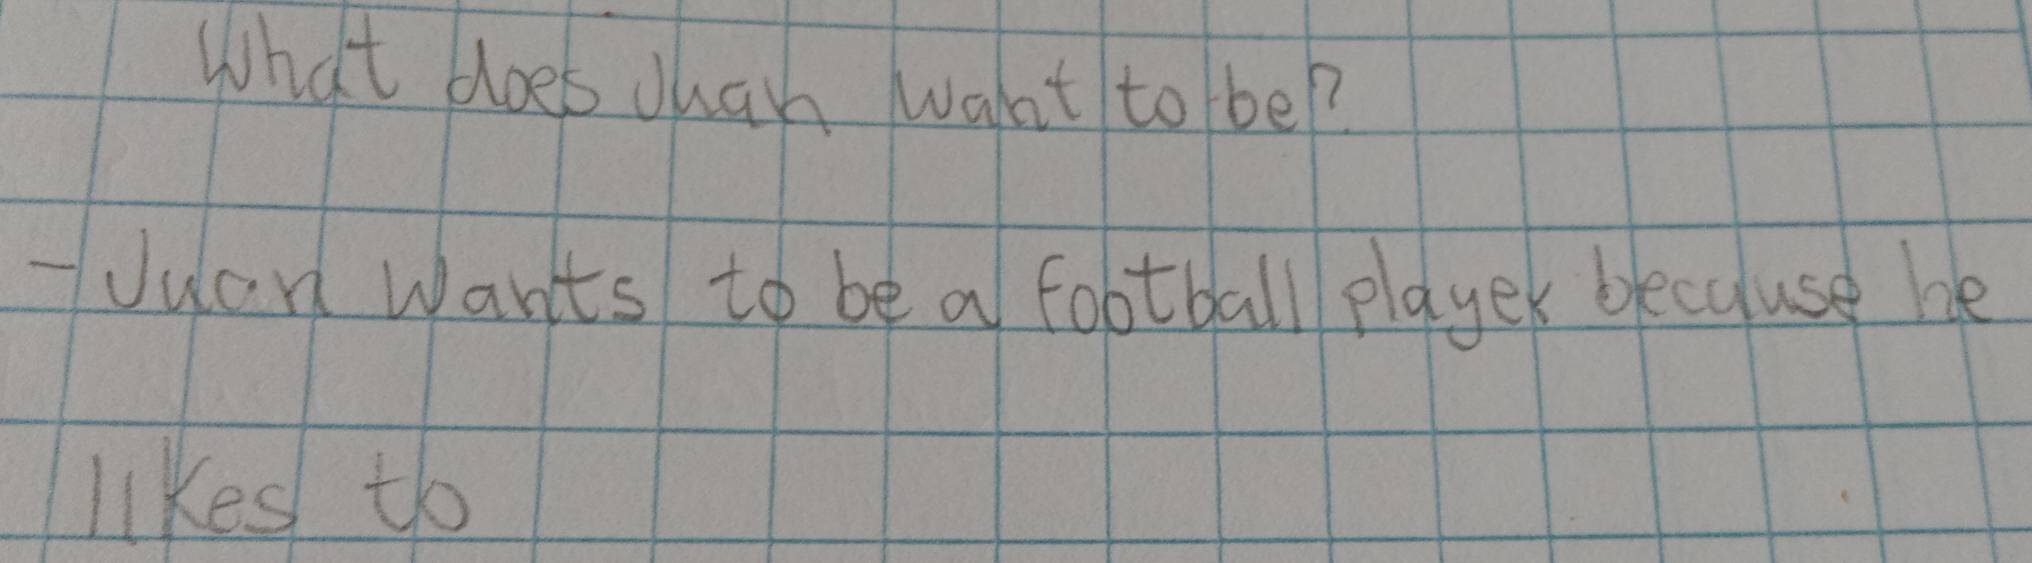 What does Juan want to be?
- Juan wants to be a football player because he
likes to